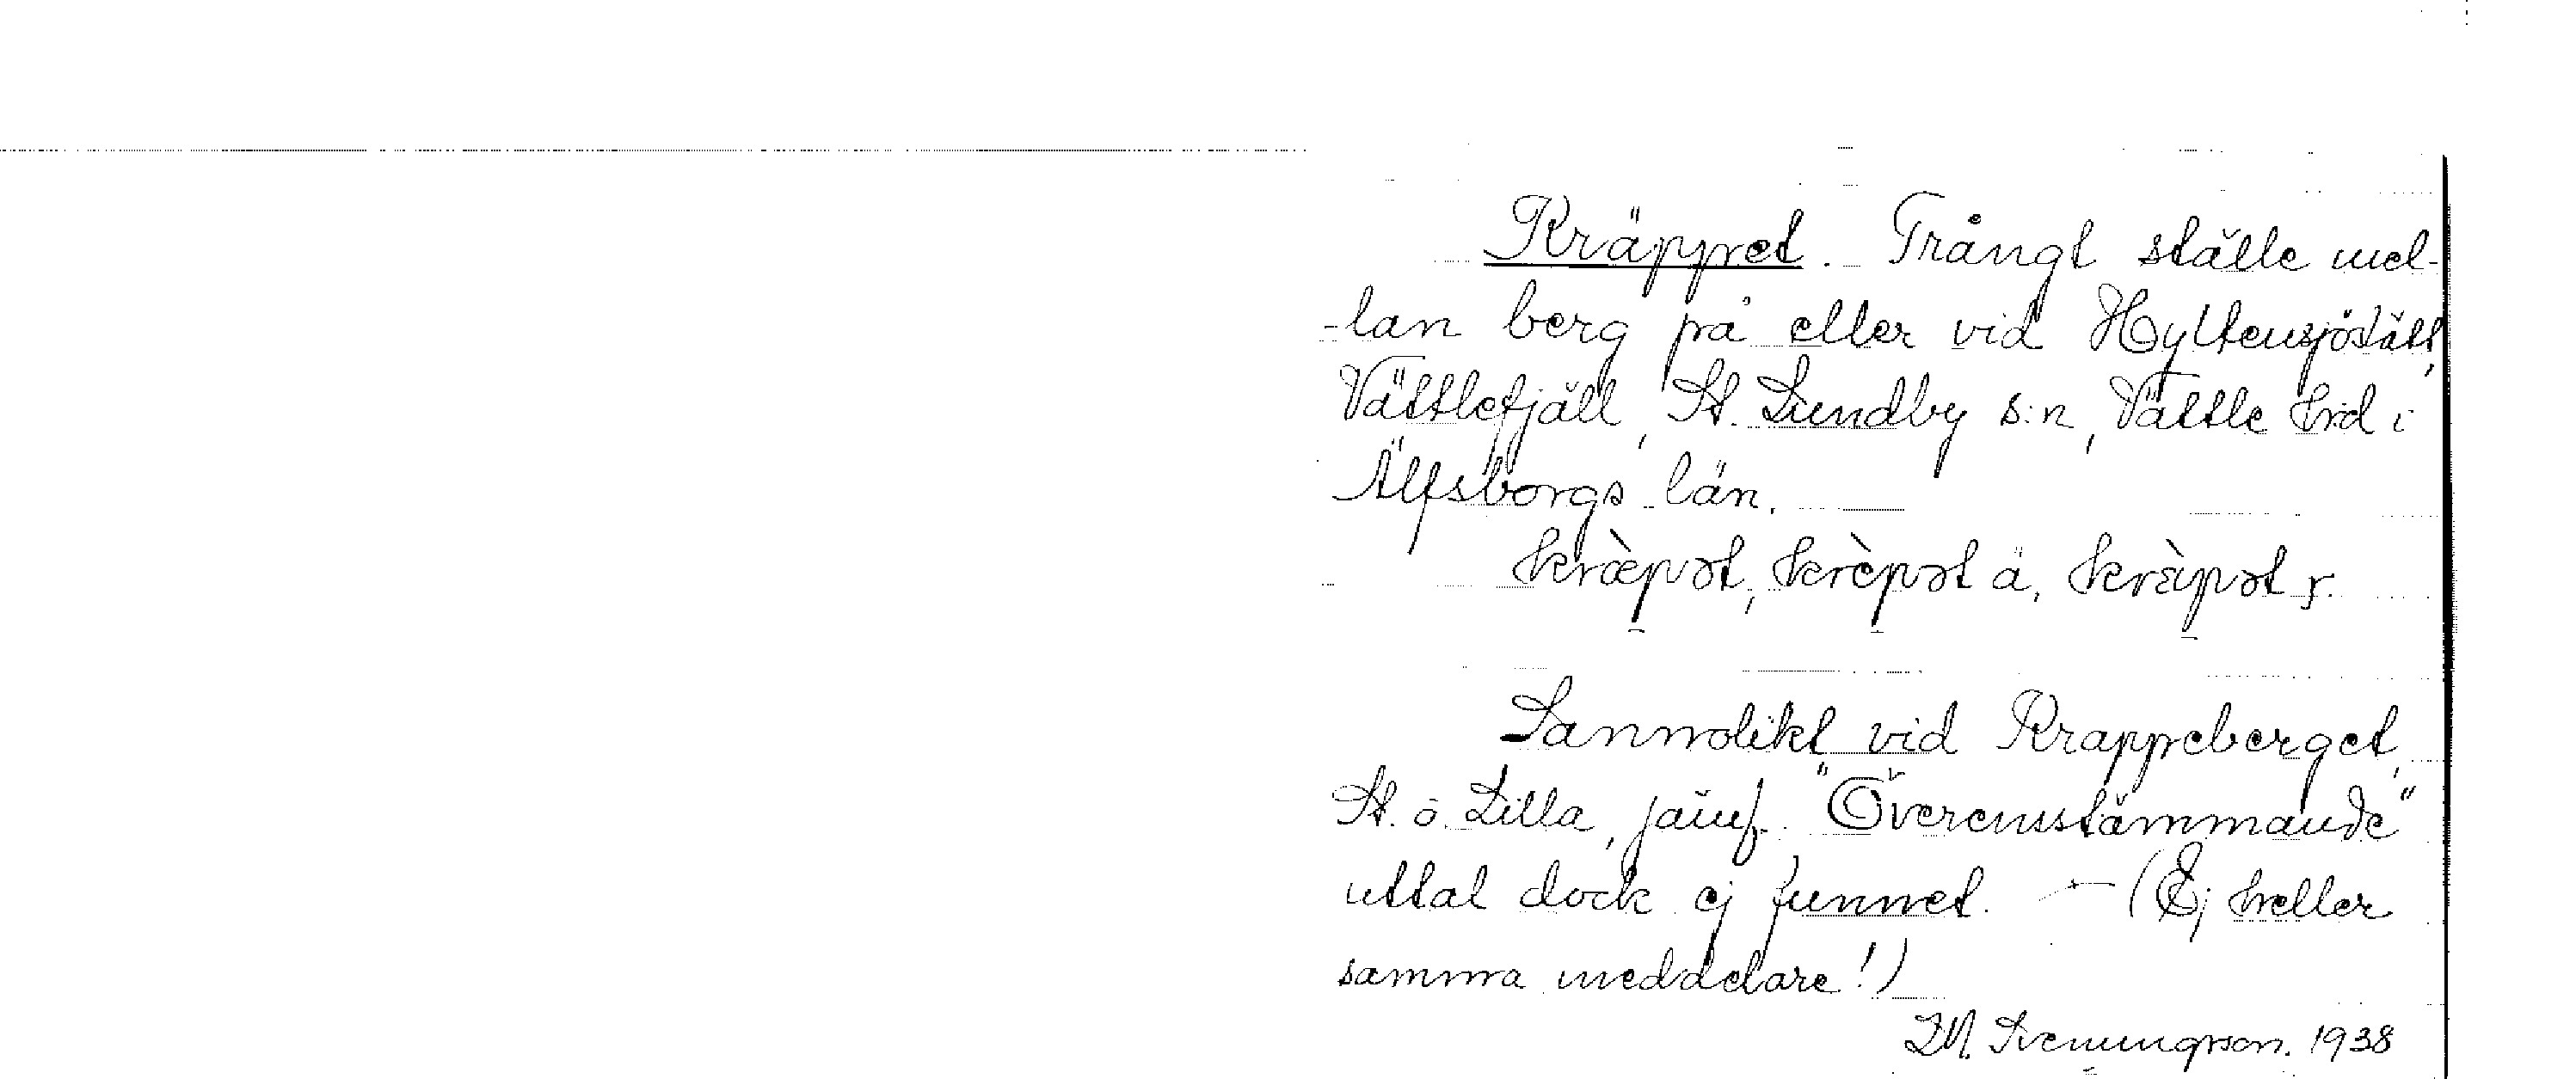 Kräppet. Trångt ställe mel-
-lan berg på eller vid Hyltensjötått,
Vättlefjäll, St. Lundby s:n, Vättle hrd i
Älfsborgs län.
kræ̀pət, krèpət ä, kræ̀pət r.
Sannolikt vid Krappeberget,
St. o. Lilla, jämf. "Överensstämmande"
uttal dock ej funnet. – (Ej heller
samma meddelare!)
IM. Svenungsson. 1938